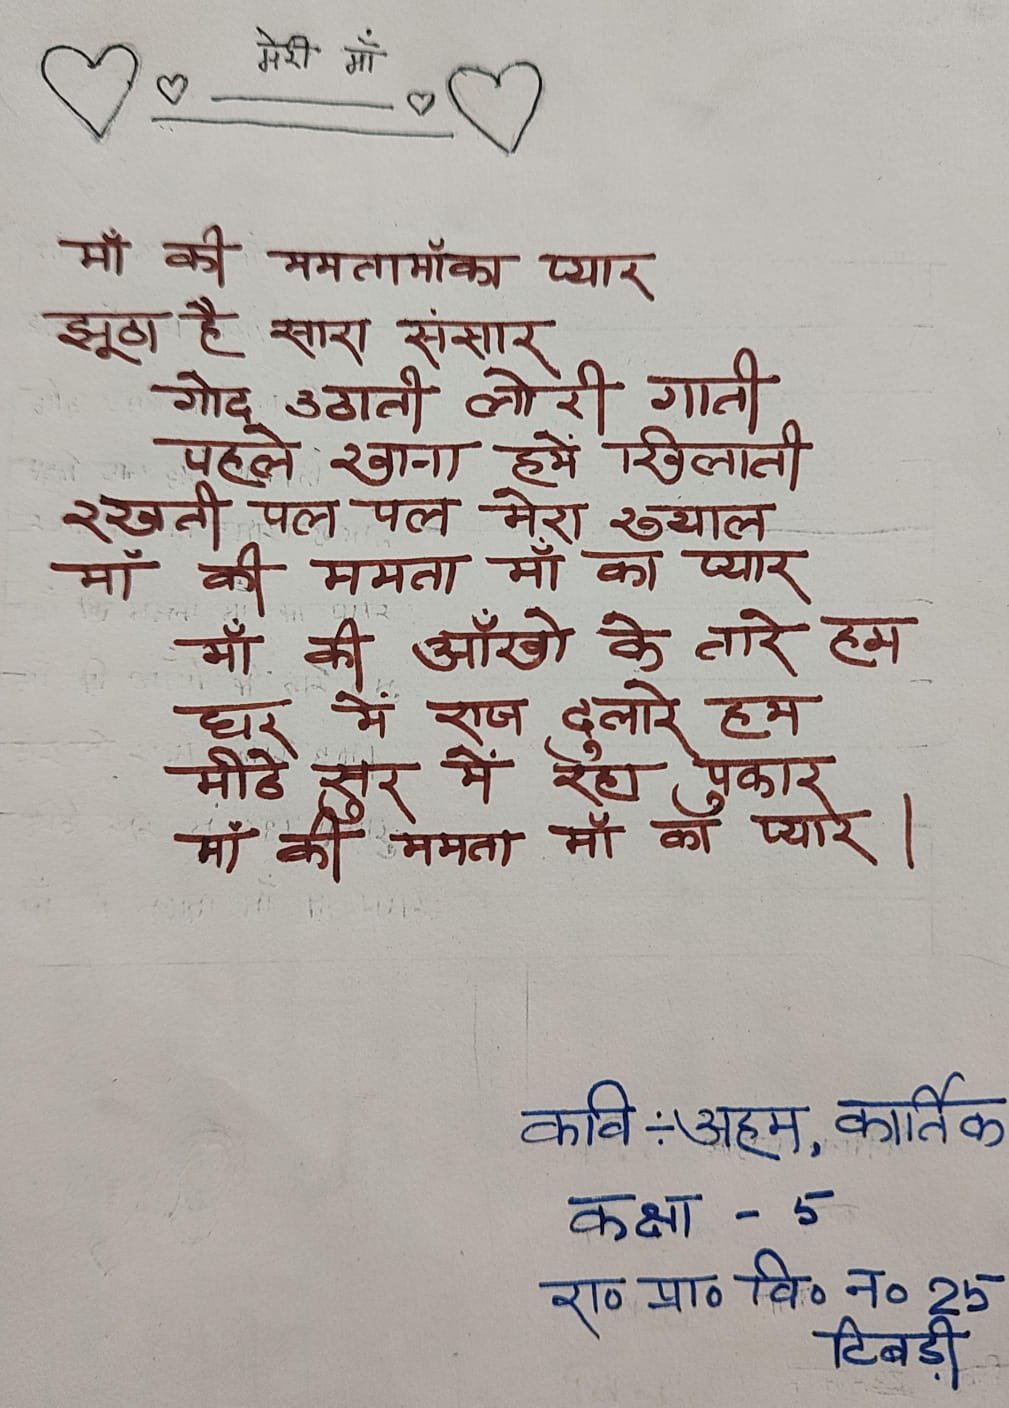 मेरी माँ
माँ की ममतामाँका प्यार
झूठा है सारा संसार
गोद उठाती लोरी गाती
पहले खाना हमें खिलाती
रखती पल पल मेरा ख्याल
माँ की ममता माँ का प्यार
माँ की आँखो के तारे हम
घर में राज दुलारे हम
मीठे सुर में रहा पुकार
माँ की ममता माँ का प्यार।
कवि ÷ अहम, कार्तिक
कक्षा - 5
रा० प्रा० वि० न० 25
टिबड़ी